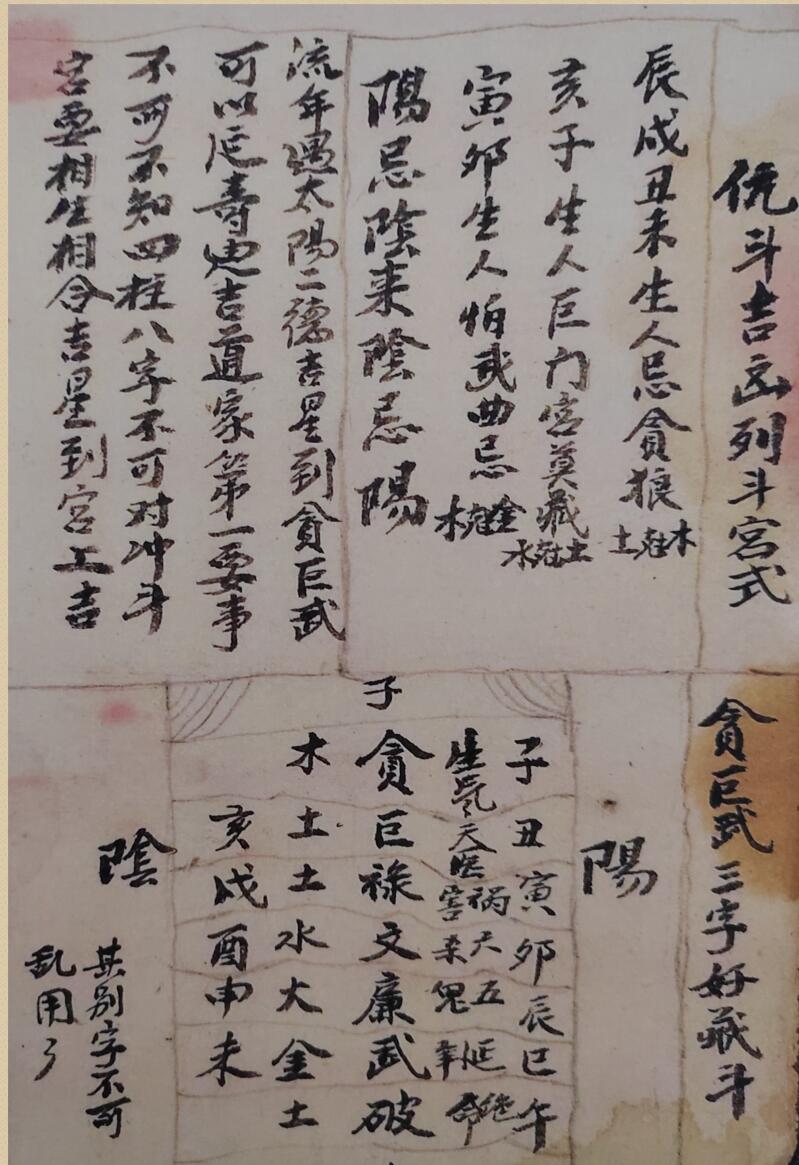 伉斗吉凶列斗宫式
辰戌丑未生人忌貪狼木尅土
亥子生人巨门宫莫藏土尅水
寅卯生人怕武曲忌金尅木
陽忌陰来陰忌陽
流年遇太陽二德吉星到貪巨武
可以延寿迪吉道家第一要事
不可不知四柱八字不可对冲斗
宫要相生相合吉星到宫工吉
貪巨武三字好藏斗
陽
子
子丑寅卯辰巳午
生氣天医祸害天杀五鬼延年绝命
貪巨祿文廉武破
木土土水火金土
亥戌酉申未
陰
其别字不可
乱用了